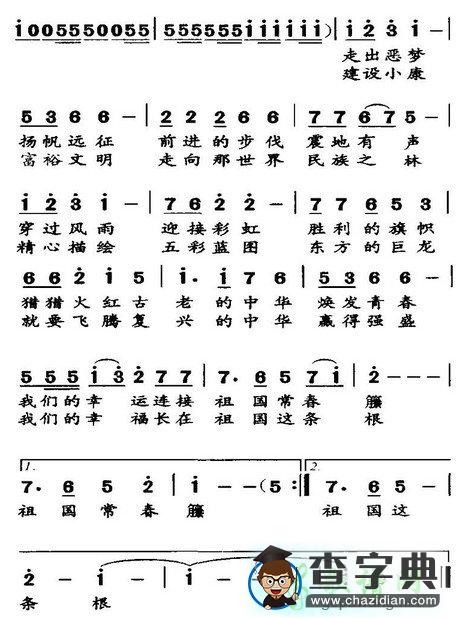 i005555500555|55555555iiii iiii)|i 2 3 i –|
走出恶梦
建设小康
5 3 6 6 –|2 2 2 6 6|7 7 6 7 5 –|
扬帆远征 前进的步伐 震地有声
富裕文明 走向那世界 民族之林
i 2 3 i –|7 7 6 2 –|7 7 6 5 3|
穿过风雨 迎接彩虹 胜利的旗帜
精心描绘 五彩蓝图 东方的巨龙
6 6 2 i 5|i. i 7 6|5 3 6 6 –|
猎猎火红古 老的中华 焕发青春
就要飞腾复 兴的中华 赢得强盛
5 5 5 i 3|2 7 i i|7. 6 5 7 i|2 – –|
我们的幸 运连接 祖国常春 籐
我们的幸 福长在 祖国这条 根
1. 2.
7. 6 5 2|i i – (5:|7. 6 5 –|
祖国常春 籐 祖国这
2 – i –|i – – –|i
条 根
查字典
www.chazidian.com